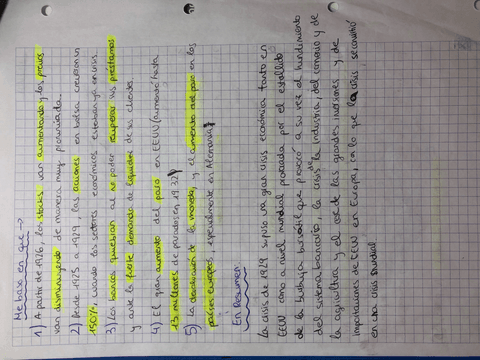 Me baso en que →
1) A partir de 1926, los stocks van aumentando y los precios
van disminuyendo de manera muy pronunciada.
2) Desde 1925 a 1929, las acciones en bolsa crecieron un
150% cuando los sectores económicos estaban ya en crisis.
3) Los bancos quiebran al no poder recuperar los préstamos
y ante la fuerte demanda de liquidez de sus clientes.
4) El gran aumento del paro en EEUU (aumentó hasta
13 millones de parados en 1932)
5) La devaluación de la moneda, y el aumento del paro en los
países europeos, especialmente en Alemania.
En Resumen
La crisis de 1929 supuso una gran crisis económica tanto en
EEUU como a nivel mundial provocada por el estallido
de la burbuja bursátil que provocó a su vez el hundimiento
del sistema bancario, la crisis de la industria, del comercio y de
la agricultura y el cese de las grandes inversiones y de
importaciones de EEUU en Europa, con lo que la crisis se convirtió
en una crisis mundial